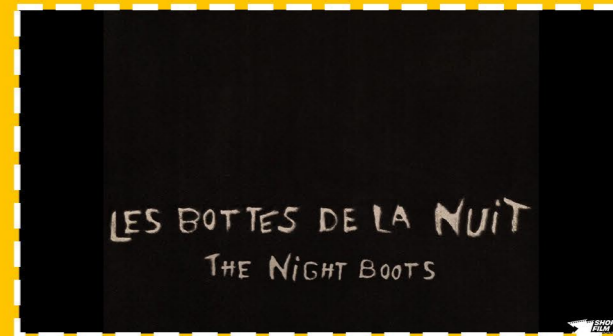 LES BOTTES DE LA NUiT
THE NiGHT BOOTS
FILM